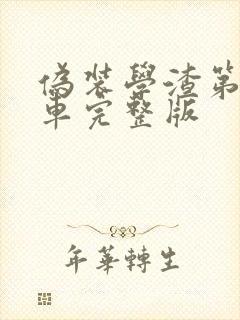 偽裝學渣第
車完整版
年華轉生